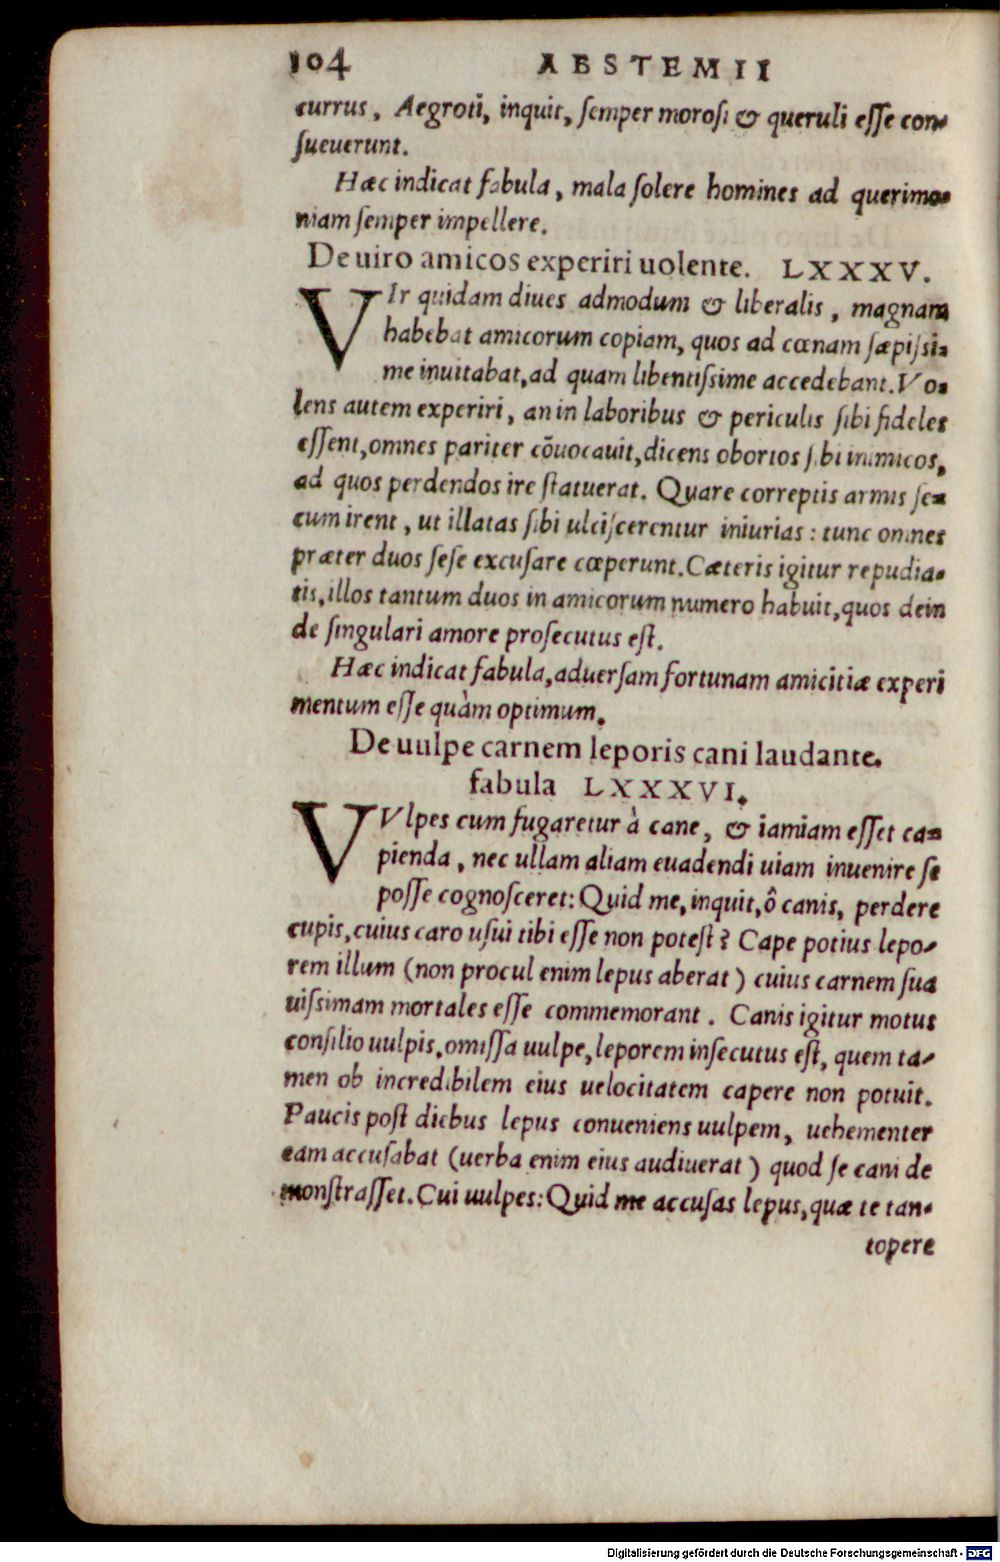 104 ABSTEMII
currus, Aegroti, inquit, ſemper moroſi & queruli eſſe con-
ſueuerunt.
Hæc indicat fabula, mala ſolere homines ad querimo-
niam ſemper impellere.
De uiro amicos experiri uolente. LXXXV.
VIr quidam diues admodum & liberalis, magnam
habebat amicorum copiam, quos ad cœnam ſæpiſsi-
me inuitabat, ad quam libentiſsime accedebant. Vo-
lens autem experiri, an in laboribus & periculis ſibi fideles
eſſent, omnes pariter cōuocauit, dicens obortos ſibi inimicos,
ad quos perdendos ire ſtatuerat. Quare correptis armis ſe-
cum irent, ut illatas ſibi ulciſcerentur iniurias: tunc omnes
præter duos ſeſe excuſare cœperunt. Cæteris igitur repudia-
tis, illos tantum duos in amicorum numero habuit, quos dein
de ſingulari amore proſecutus eſt.
Hæc indicat fabula, aduerſam fortunam amicitiæ experi
mentum eſſe quàm optimum.
De uulpe carnem leporis cani laudante.
fabula LXXXVI.
VVlpes cum fugaretur à cane, & iamiam eſſet ca-
pienda, nec ullam aliam euadendi uiam inuenire ſe
poſſe cognoſceret: Quid me, inquit, ô canis, perdere
cupis, cuius caro uſui tibi eſſe non poteſt? Cape potius lepo-
rem illum (non procul enim lepus aberat) cuius carnem ſua
uiſsimam mortales eſſe commemorant. Canis igitur motus
conſilio uulpis, omiſſa uulpe, leporem inſecutus eſt, quem ta-
men ob incredibilem eius uelocitatem capere non potuit.
Paucis poſt diebus lepus conueniens uulpem, uehementer
eam accuſabat (uerba enim eius audiuerat) quod ſe cani de
monſtraſſet. Cui uulpes: Quid me accuſas lepus, quæ te tan-
topere
Digitalisierung gefördert durch die Deutsche Forschungsgemeinschaft - DFG